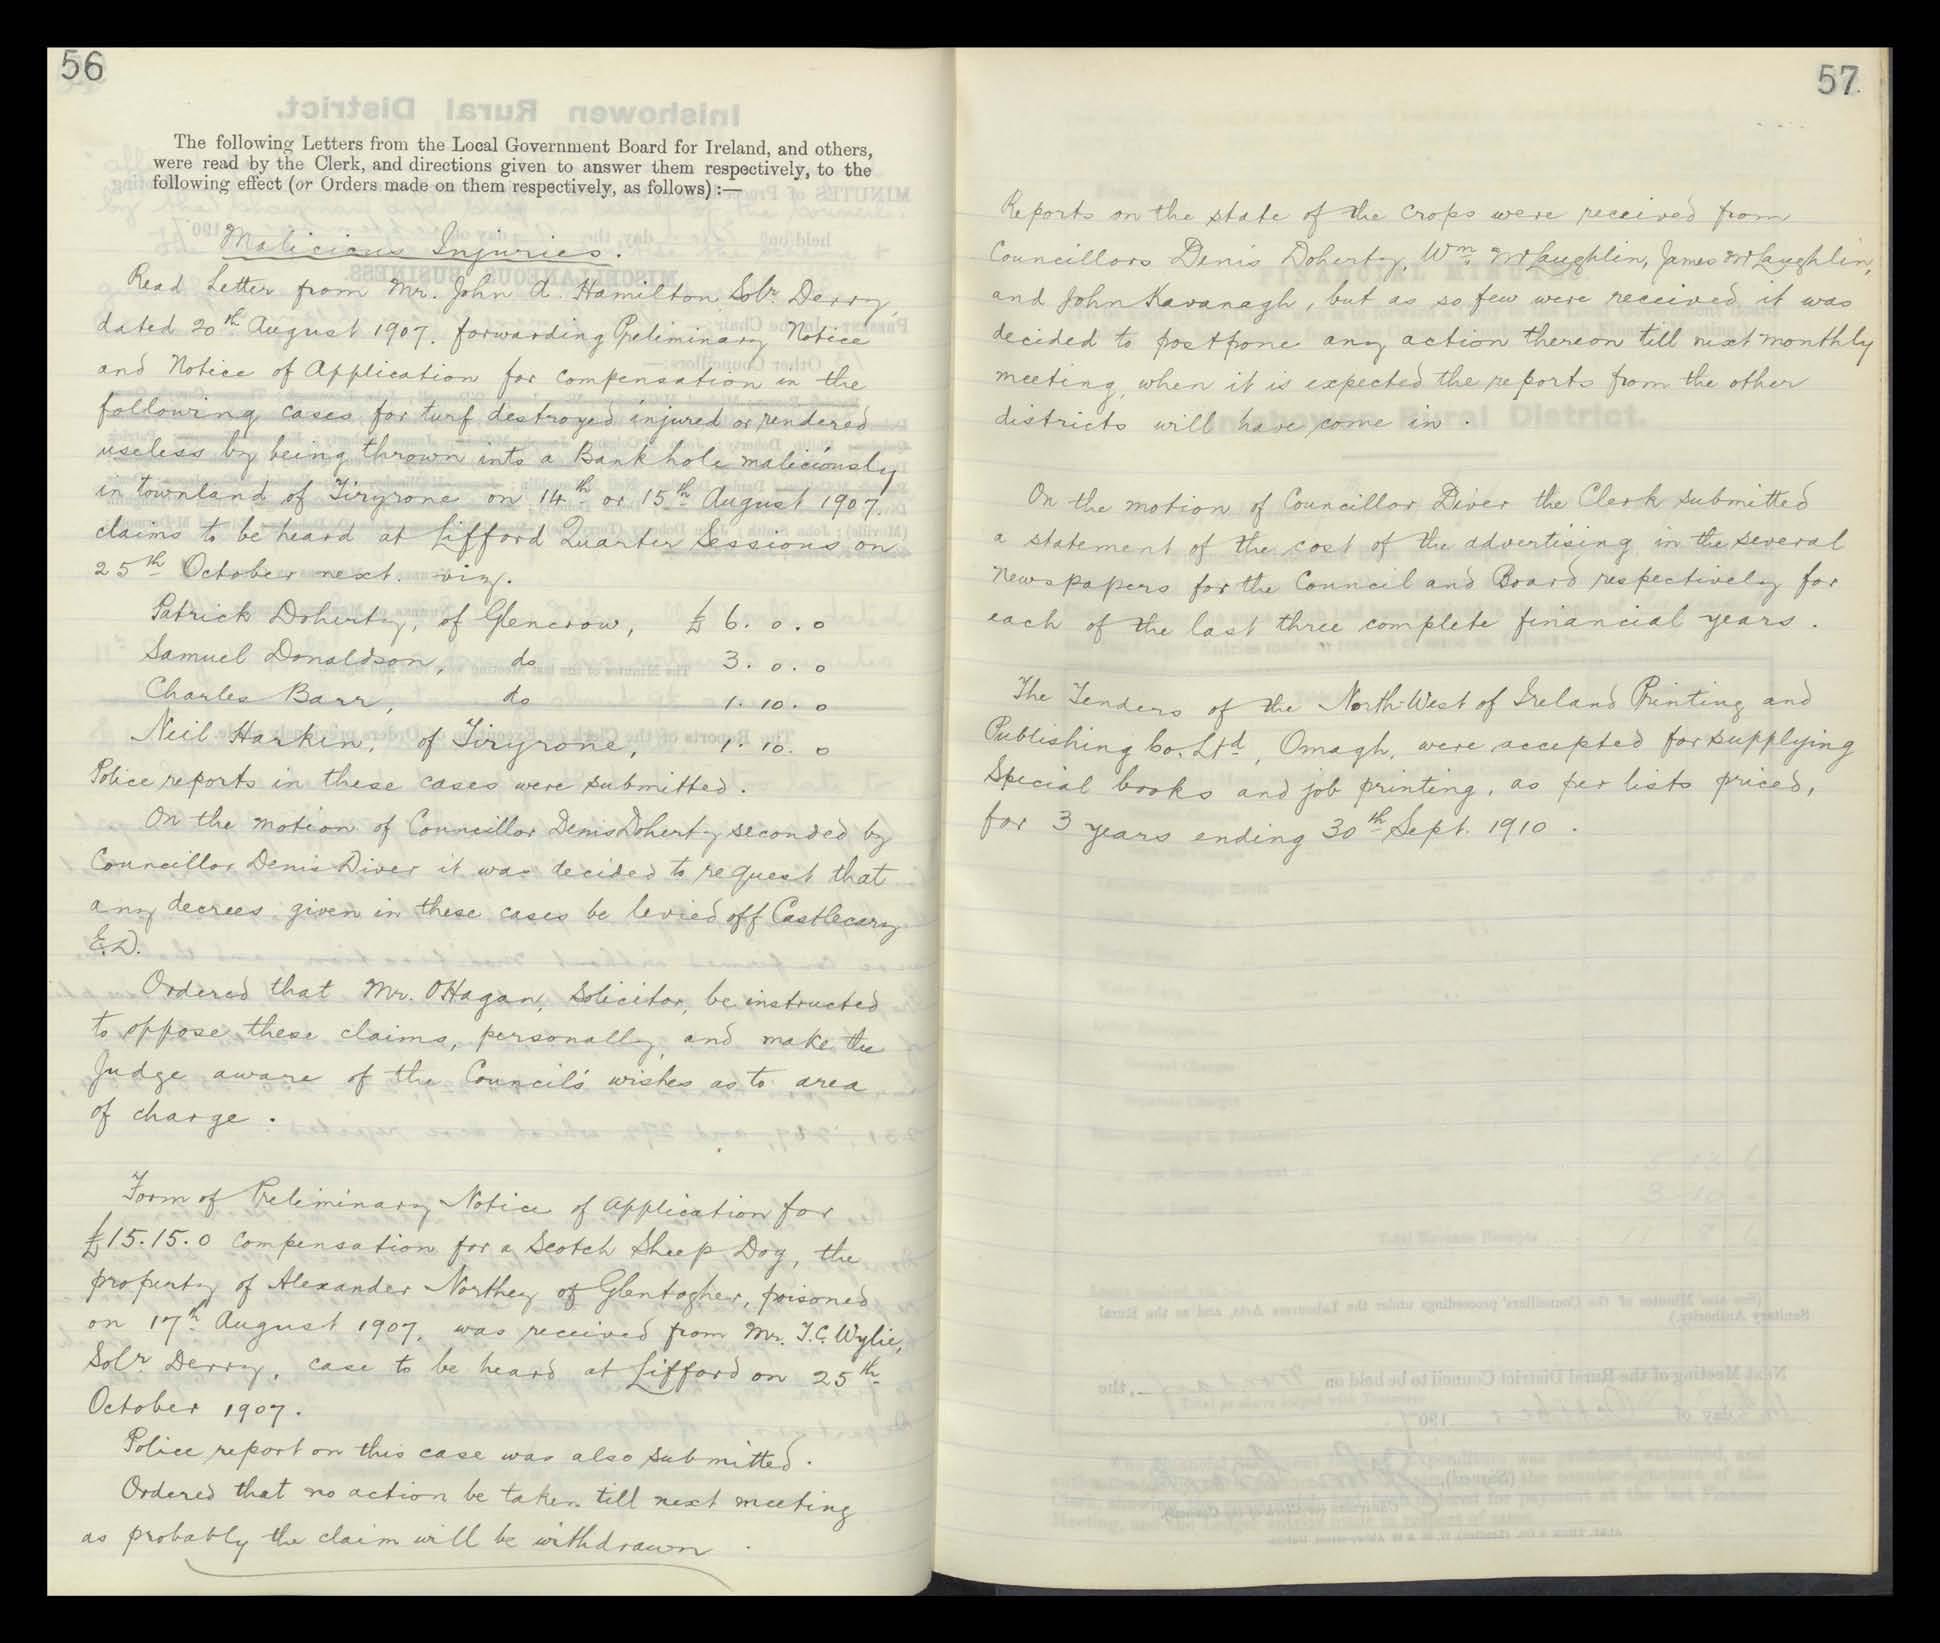 56
The following Letters from the Local Government Board for Ireland, and others,
were read by the Clerk, and directions given to answer them respectively, to the
following effect (or Orders made on them respectively, as follows) :—
Malicious Injuries.
Read Letter from Mr. John A. Hamilton Solr. Derry,
dated 20th August 1907. forwarding Preliminary Notice
and Notice of Application for compensation in the
following cases for turf destroyed injured or rendered
useless by being thrown into a Bankhole maliciously
in townland of Tiryrone on 14th or 15th August 1907.
claims to be heard at Lifford Quarter Sessions on
25th October next. viz.
Patrick Doherty, of Glencrow, £6. 0. 0
Samuel Donaldson, do 3. 0. 0
Charles Barr, do 1. 10. 0
Neil Harkin, of Tiryrone, 1. 10. 0
Police reports in these cases were submitted.
On the motion of Councillor Denis Doherty seconded by
Councillor Denis Diver it was decided to request that
any decrees given in these cases be levied off Castlecary
E.D.
Ordered that Mr. O'Hagan, Solicitor, be instructed
to oppose these claims, personally, and make the
Judge aware of the Council's wishes as to area
of charge.
Form of Preliminary Notice of Application for
£15. 15. 0 compensation for a Scotch Sheep Dog, the
property of Alexander Northey of Glentogher, poisoned
on 17th August 1907, was received from Mr. T.C. Wylie,
Solr Derry, case to be heard at Lifford on 25th
October 1907.
Police report on this case was also submitted.
Ordered that no action be taken till next meeting
as probably the claim will be withdrawn.
57.
Reports on the state of the crops were received from
Councillors Denis Doherty, Wm. McLaughlin, James McLaughlin,
and John Kavanagh, but as so few were received it was
decided to postpone any action thereon till next monthly
meeting, when it is expected the reports from the other
districts will have come in.
On the motion of Councillor Diver the Clerk submitted
a statement of the cost of the advertising in the several
Newspapers for the Council and Board respectively for
each of the last three complete financial years.
The Tenders of the North-West of Ireland Printing and
Publishing Co. Ltd, Omagh, were accepted for supplying
Special books and job printing, as per lists priced,
for 3 years ending 30th Sept. 1910.